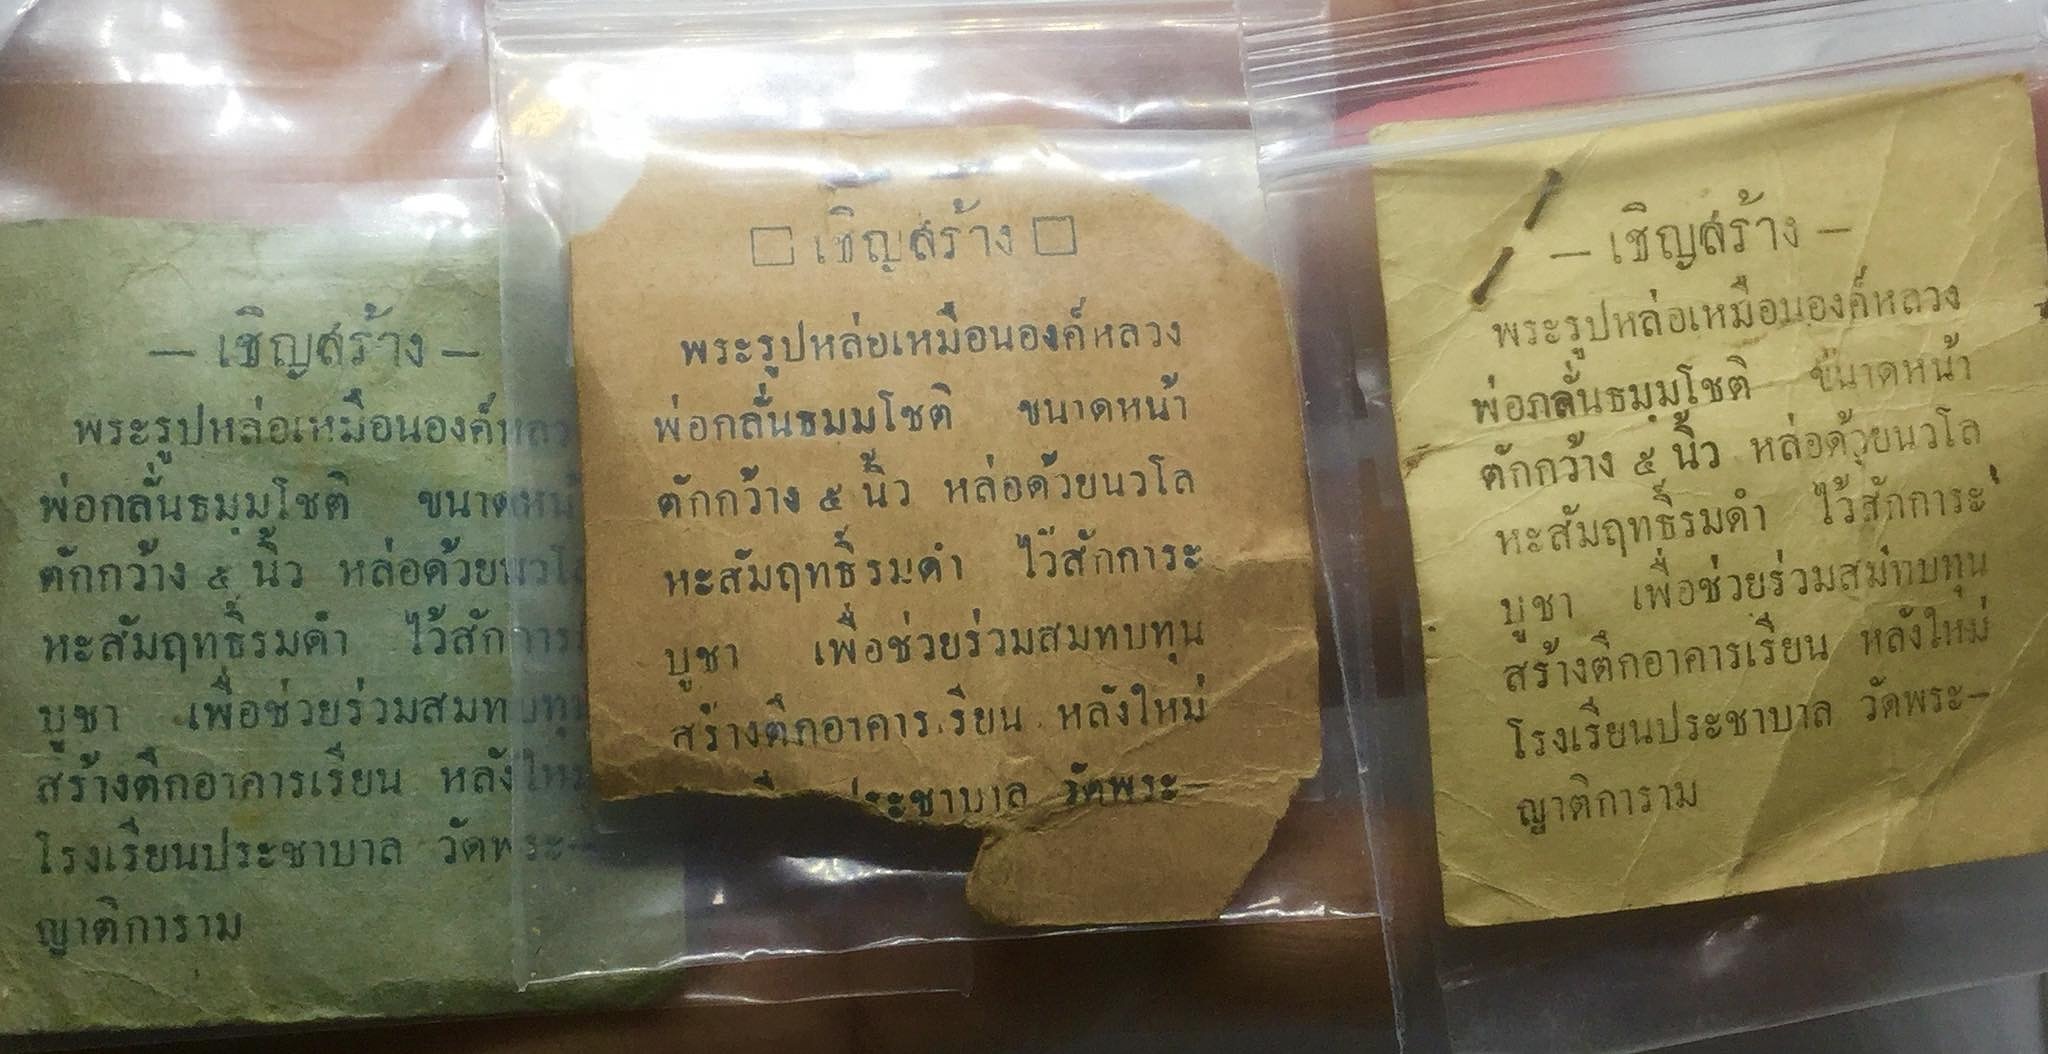 — เชิญสร้าง —
พระรูปหล่อเหมือนองค์หลวง
พ่อกลั่นธมฺมโชติ ขนาดหน้า
ตักกว้าง ๕ นิ้ว หล่อด้วยนวโล
หะสัมฤทธิ์รมดำ ไว้สักการะ
บูชา เพื่อช่วยร่วมสมทบทุน
สร้างตึกอาคารเรียน หลังใหม่
โรงเรียนประชาบาล วัดพระ—
ญาติการาม
□ เชิญสร้าง □
พระรูปหล่อเหมือนองค์หลวง
พ่อกลั่นธมมโชติ ขนาดหน้า
ตักกว้าง ๕ นิ้ว หล่อด้วยนวโล
หะสัมฤทธิ์รมดำ ไว้สักการะ
บูชา เพื่อช่วยร่วมสมทบทุน
สร้างตึกอาคารเรียน หลังใหม่
ประชาบาล วัดพระ—
— เชิญสร้าง —
พระรูปหล่อเหมือนองค์หลวง
พ่อกลั่นธมฺมโชติ ขนาดหน้า
ตักกว้าง ๕ นิ้ว หล่อด้วยนวโล
หะสัมฤทธิ์รมดำ ไว้สักการะ
บูชา เพื่อช่วยร่วมสมทบทุน
สร้างตึกอาคารเรียน หลังใหม่
โรงเรียนประชาบาล วัดพระ—
ญาติการาม